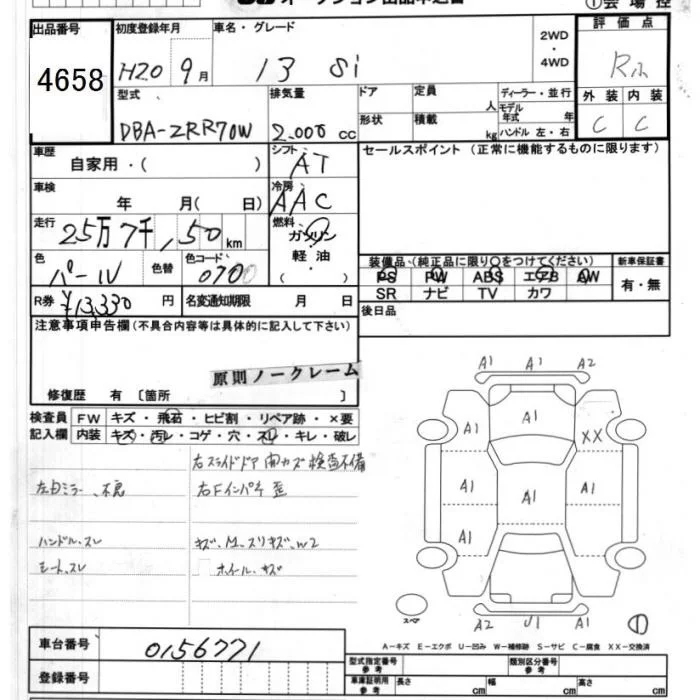 出品番号 初度登録年月 車名・グレード 2WD・4WD 評価点
4658 H20 9月 13 Si R
型式 排気量 ドア 定員 人 ディーラー・並行 外装 内装
モデル年式 年
DBA-ZRR70W 2.000 cc 形状 積載 kg ハンドル 左・右 C C
車歴 自家用・( ) シフト AT セールスポイント (正常に機能するものに限ります)
車検 年 月( 日) 冷房 AAC
走行 25万7千,150 km 燃料 ガソリン 軽油・
装備品(純正品に限り○をつけてください) 新車保証書
色 パール 色替 色コード 0700 PS PW ABS エアB AW 有・無
SR ナビ TV カワ
R券 ¥13,330 円 名変通知期限 月 日 後日品
注意事項申告欄(不具合内容等は具体的に記入して下さい)
原則ノークレーム
修復歴 有〔箇所 〕
検査員 FW キズ・飛石・ヒビ割・リペア跡・×要
記入欄 内装 キズ・汚レ・コゲ・穴・スレ・キレ・破レ
右スライドドア 検査不備
左ミラー 不良 右Fインパネ歪
ハンドル.スレ キズ、M、スリキズ、W2
シート.スレ ホイール.キズ
A1 A1 A2
A1 A1 XX
A1 A1 A1
A1
A2 U1 A1
スペア
A-キズ E-エクボ U-凹み W-補修跡 S-サビ C-腐食 XX-交換済
車台番号 0156771
型式指定番号 参考 類別区分番号 参考
登録番号 車庫証明用 参考 長さ cm 幅 cm 高さ cm